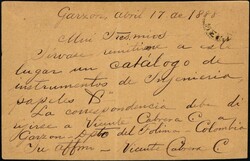 Garzon, Abril 17 de 188
Mui Sres. mios
Sirvase remitirme a este
lugar un Catálogo de
instrumentos de Ingenieria
papeles &.
La correspondencia debe di
rijirse a Vicente Cabrera C.
Garzon - Dpto. del Tolima - Colombia
Su affmo. - Vicente Cabrera C